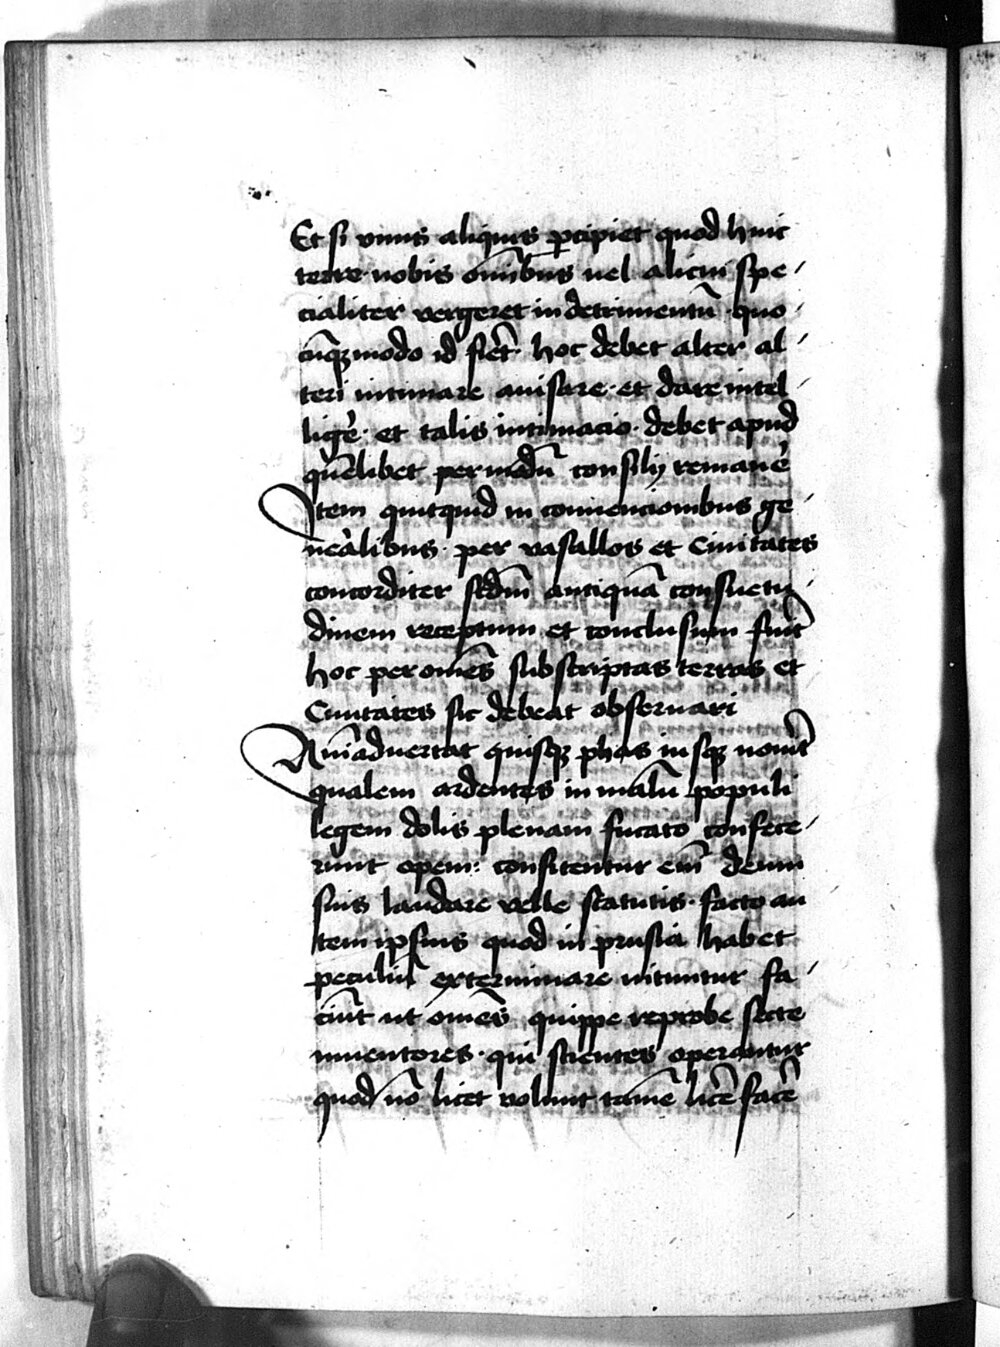 Et si unus aliquis ꝑcipiet quod huic
terre nobis om̄ibus uel alicui spe
cialiter vergeret in detrimentū quo
cūqꝫ modo id fiet̄ hoc debet alter al
teri intimare auisare et dare intel
ligē et talis intimacio debet apud
quēlibet per modū consilij remanē
Item quitquid in conuencionibus ge
nēalibus per vasallos et Ciuitates
concorditer scdm̄ antiquā consuetu
dinem receptum et conclusum fuit̄
hoc per om̄es subscriptas terras et
Ciuitates sic debeat obseruari
Aīaduertat quisqꝫ phās iusqꝫ nouit̄
qualem ardentes in malū populi
legem dolis plenam fucato confece
runt opem: confitentur em̄ deum
suis laudare velle statutis facto au
tem ipsius quod in prusia habet
peculiū exterminare nituntur fa
ciūt ut om̄es quippe reprobe secte
inuentores qui scientes operantur
quod nō licet volunt tamē licē facē